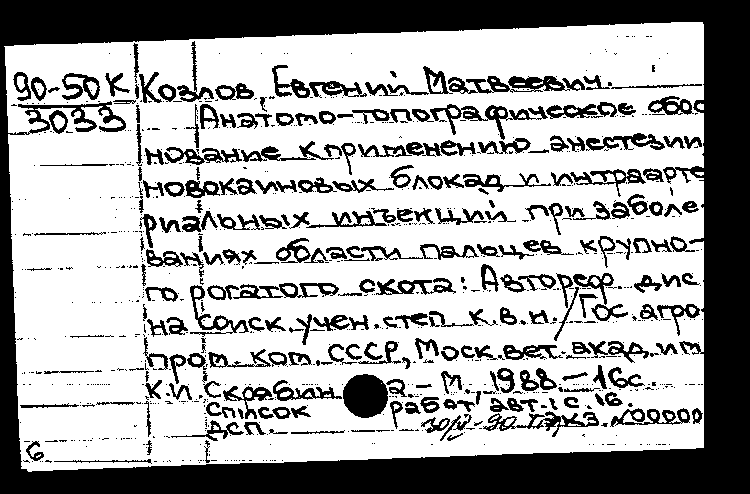 90-50К Козлов, Евгений Матвеевич.
3033 Анатомо-топографическое обос
нование к применению анестезии,
новокаиновых блокад и интраарте
риальных инъекций при заболе-
ваниях области пальцев крупно-
го рогатого скота: Автореф дис
на соиск. учен. степ. к.в.н. / Гос. агро-
пром. ком. СССР, Моск. вет. акад. им
К.И. Скрябин а. - М. 1988. - 16с.
Список работ авт.: с. 16.
ДСП. -90 экз. №00000
6